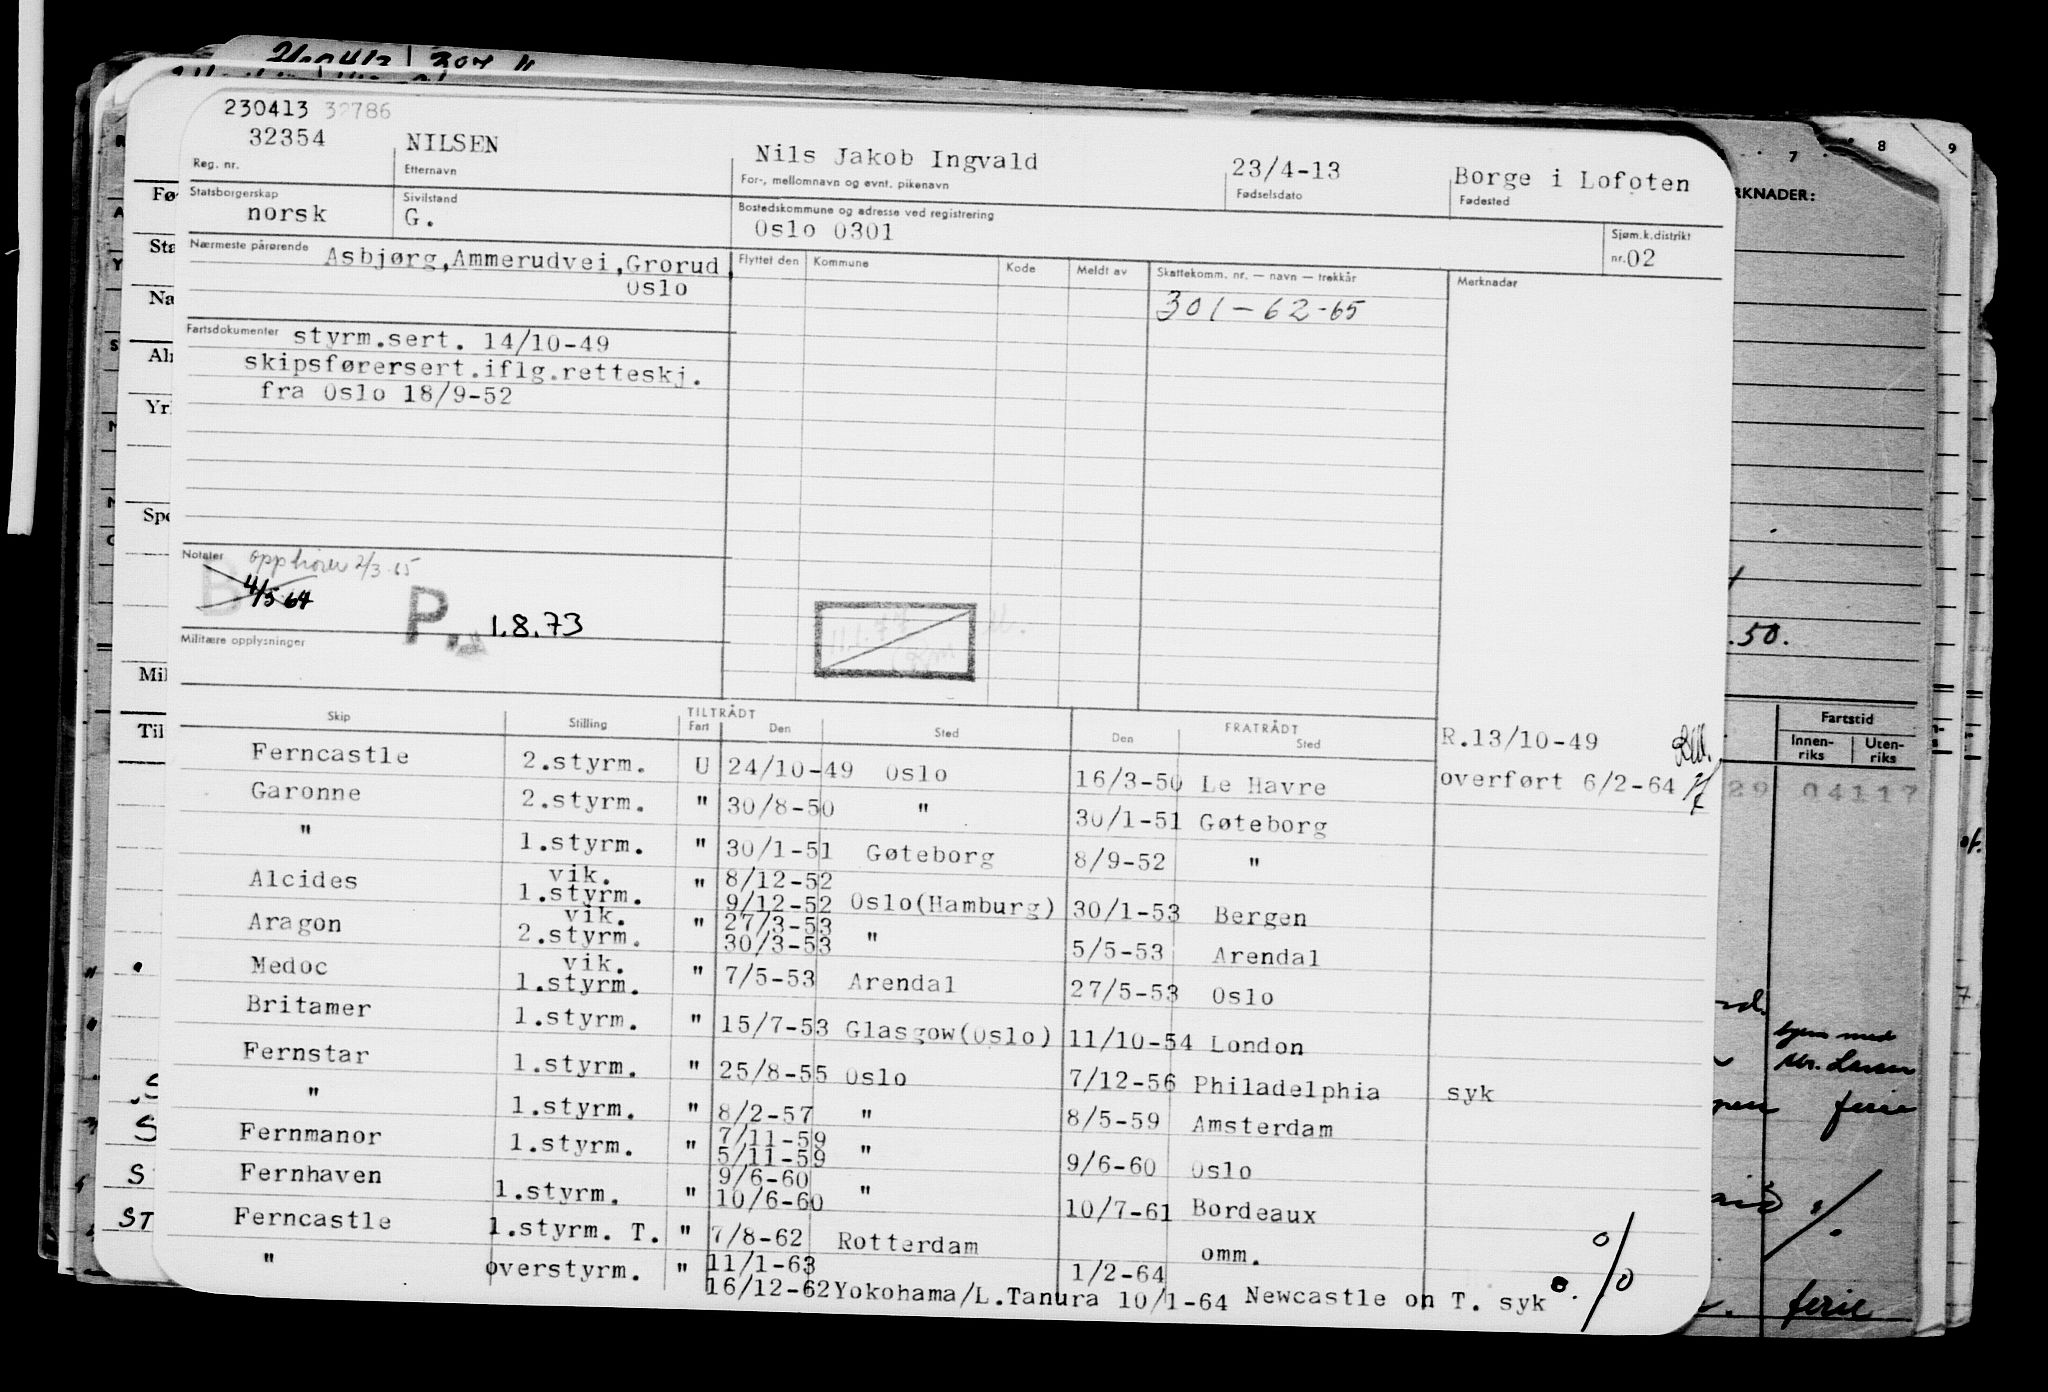 230413 32786
32354 NILSEN Nils Jakob Ingvald 23/4-13 Borge i Lofoten
Reg. nr. Etternavn For-, mellomnavn og evnt. pikenavn Fødselsdato Fødested
Statsborgerskap Sivilstand Bostedskommune og adresse ved registrering Sjøm.k.distrikt
norsk G. Oslo 0301 nr. 02
Nærmeste pårørende Asbjørg, Ammerudvei, Grorud Flyttet den Kommune Kode Meldt av Skattekomm. nr. — navn — trekkår Merknader
Oslo 301-62-65
Fartsdokumenter styrm.sert. 14/10-49
skipsførersert.iflg.retteskj.
fra Oslo 18/9-52
Notater opphører 2/3-65
B 4/3 64 P. 1.8.73
Militære opplysninger
Skip Stilling TILTRÅDT Fart Den Sted FRATRÅDT Den Sted R.13/10-49
Ferncastle 2.styrm. U 24/10-49 Oslo 16/3-50 Le Havre overført 6/2-64
Garonne 2.styrm. " 30/8-50 " 30/1-51 Gøteborg
" 1.styrm. " 30/1-51 Gøteborg 8/9-52 "
Alcides vik. 1.styrm. " 8/12-52 9/12-52 Oslo(Hamburg) 30/1-53 Bergen
Aragon vik. 2.styrm. " 27/3-53 30/3-53 " 5/5-53 Arendal
Medoc vik. 1.styrm. " 7/5-53 Arendal 27/5-53 Oslo
Britamer 1.styrm. " 15/7-53 Glasgow(Oslo) 11/10-54 London
Fernstar 1.styrm. " 25/8-55 Oslo 7/12-56 Philadelphia syk
" 1.styrm. " 8/2-57 " 8/5-59 Amsterdam
Fernmanor 1.styrm. " 7/11-59 5/11-59 " 9/6-60 Oslo
Fernhaven 1.styrm. " 9/6-60 10/6-60 " 10/7-61 Bordeaux
Ferncastle 1.styrm. T. " 7/8-62 Rotterdam omm.
" overstyrm. " 11/1-63 1/2-64
16/12-62 Yokohama/L.Tanura 10/1-64 Newcastle on T. syk
7 8 9
RKNADER:
.50.
Fartstid
Innen-riks Uten-riks
29 04117
Mr. Larsen
ferie
ferie